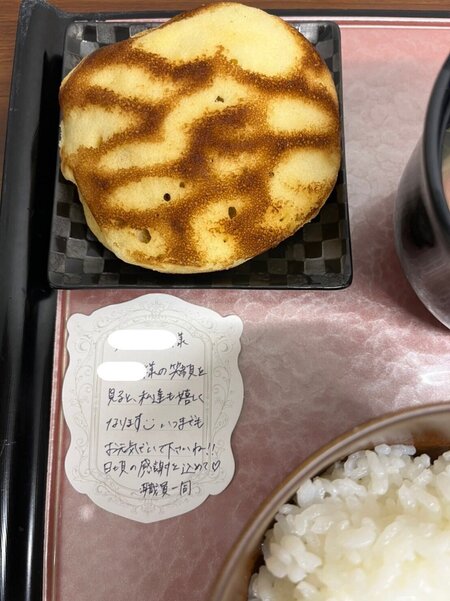 様
様の笑顔を
見ると、私達も嬉しく
なります☺いつまでも
お元気でいて下さいね!!
日頃の感謝を込めて♡
職員一同